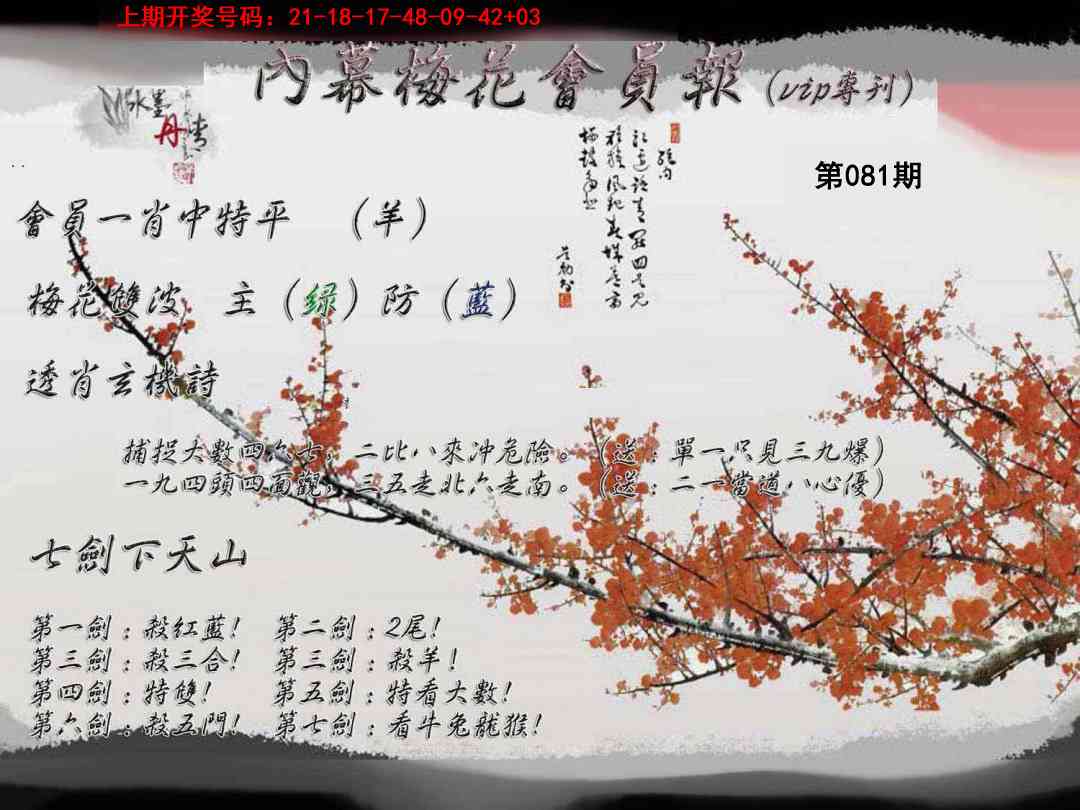 上期开奖号码：21-18-17-48-09-42+03
內幕梅花會員報（vip專刊）
水墨
丹青
第081期
會員一肖中特平 （羊）
梅花雙波 主（绿）防（藍）
透肖玄機詩
捕捉大數四六七，二比八來沖危險。（送：單一只見三九爆）
一九四頭四面觀，三五走北六走南。（送：二一當道八心優）
七劍下天山
第一劍：殺紅藍！ 第二劍：2尾！
第三劍：殺三合！ 第三劍：殺羊！
第四劍：特雙！ 第五劍：特看大數！
第六劍：殺五門！ 第七劍：看牛兔龍猴！